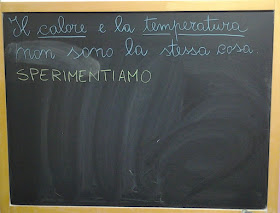 Il calore e la temperatura
non sono la stessa cosa.
SPERIMENTIAMO